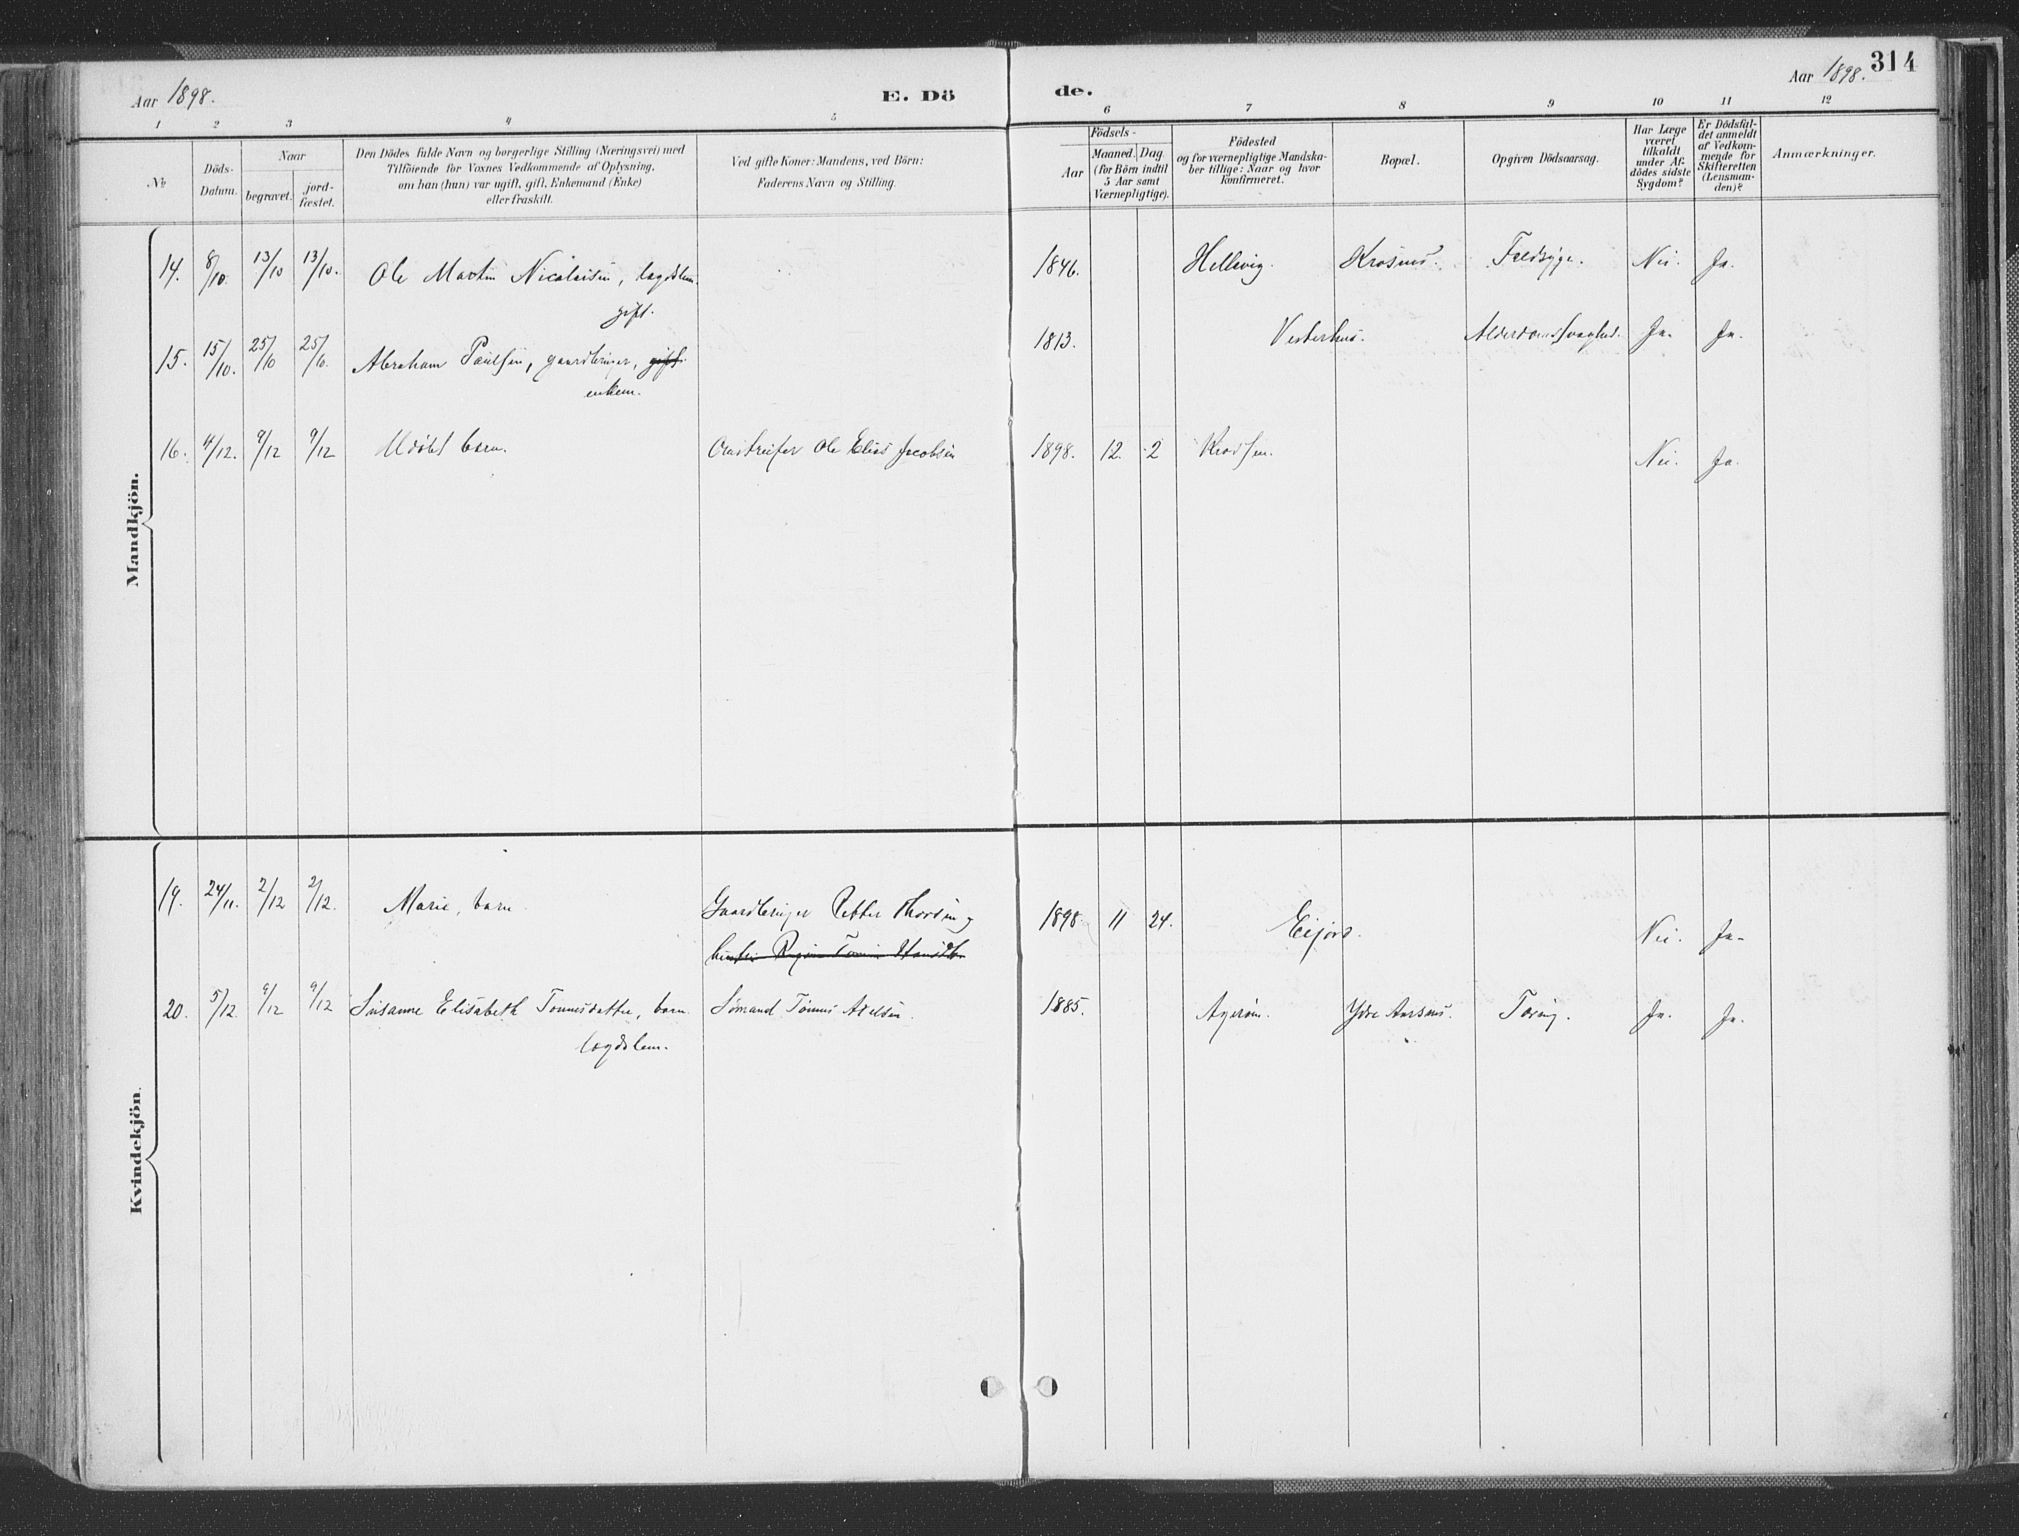 Aar 1898. E. Dö de. Aar 1898. 314
1 2 3 4 5 6 7 8 9 10 11 12
№ Döds-Datum. Naar begravet. jord-fæstet.
Den Dödes fulde Navn og borgerlige Stilling (Næringsvei) med
Tilföiende for Voxnes Vedkommende af Oplysning,
om han (hun) var ugift, gift, Enkemand (Enke)
eller fraskilt.
Ved gifte Koner: Mandens, ved Börn:
Faderens Navn og Stilling.
Födsels-
Aar Maaned. Dag.
(for Börn indtil
5 Aar samt
Værnepligtige).
Födested
og for værnepligtige Mandska-
ber tillige: Naar og hvor
konfirmeret.
Bopæl.
Opgiven Dödsaarsag.
Har Læge
været
tilkaldt
under Af-
dödes sidste
Sygdom?
Er Dödsfal-
det anmeldt
af Vedkom-
mende for
Skifteretten
(Lensman-
den)?
Anmærkninger.
Mandkjön.
14. 8/10. 13/10 13/10. Ole Martin Nicolaisen, lægdslem. 1846. Hellevig. Krosnes. Faldsyge. Nei. Ja.
gift.
15. 15/10. 25/10 25/10. Abraham Paulsen, gaardbruger, gift 1813. Vesterhus. Alderdomssvaghed. Ja. Ja.
enkem.
16. 4/12. 9/12 9/12 Udøbt barn. Ole Elias Jacobsen 1898. 12. 2 Nei. Ja.
Kvindekjön.
19. 24/11. 2/12 2/12. Marie, barn Gaardbruger Petter 1898 11 24. Eijord. Nei. Ja.
20. 5/12 9/12 9/12 Susanne Elisabeth Tønnesdatter, barn Sømand Tønnes Axelsen. 1885. Agerøen. Ydre Aarsnes. Tæring. Ja. Ja.
lægdslem.